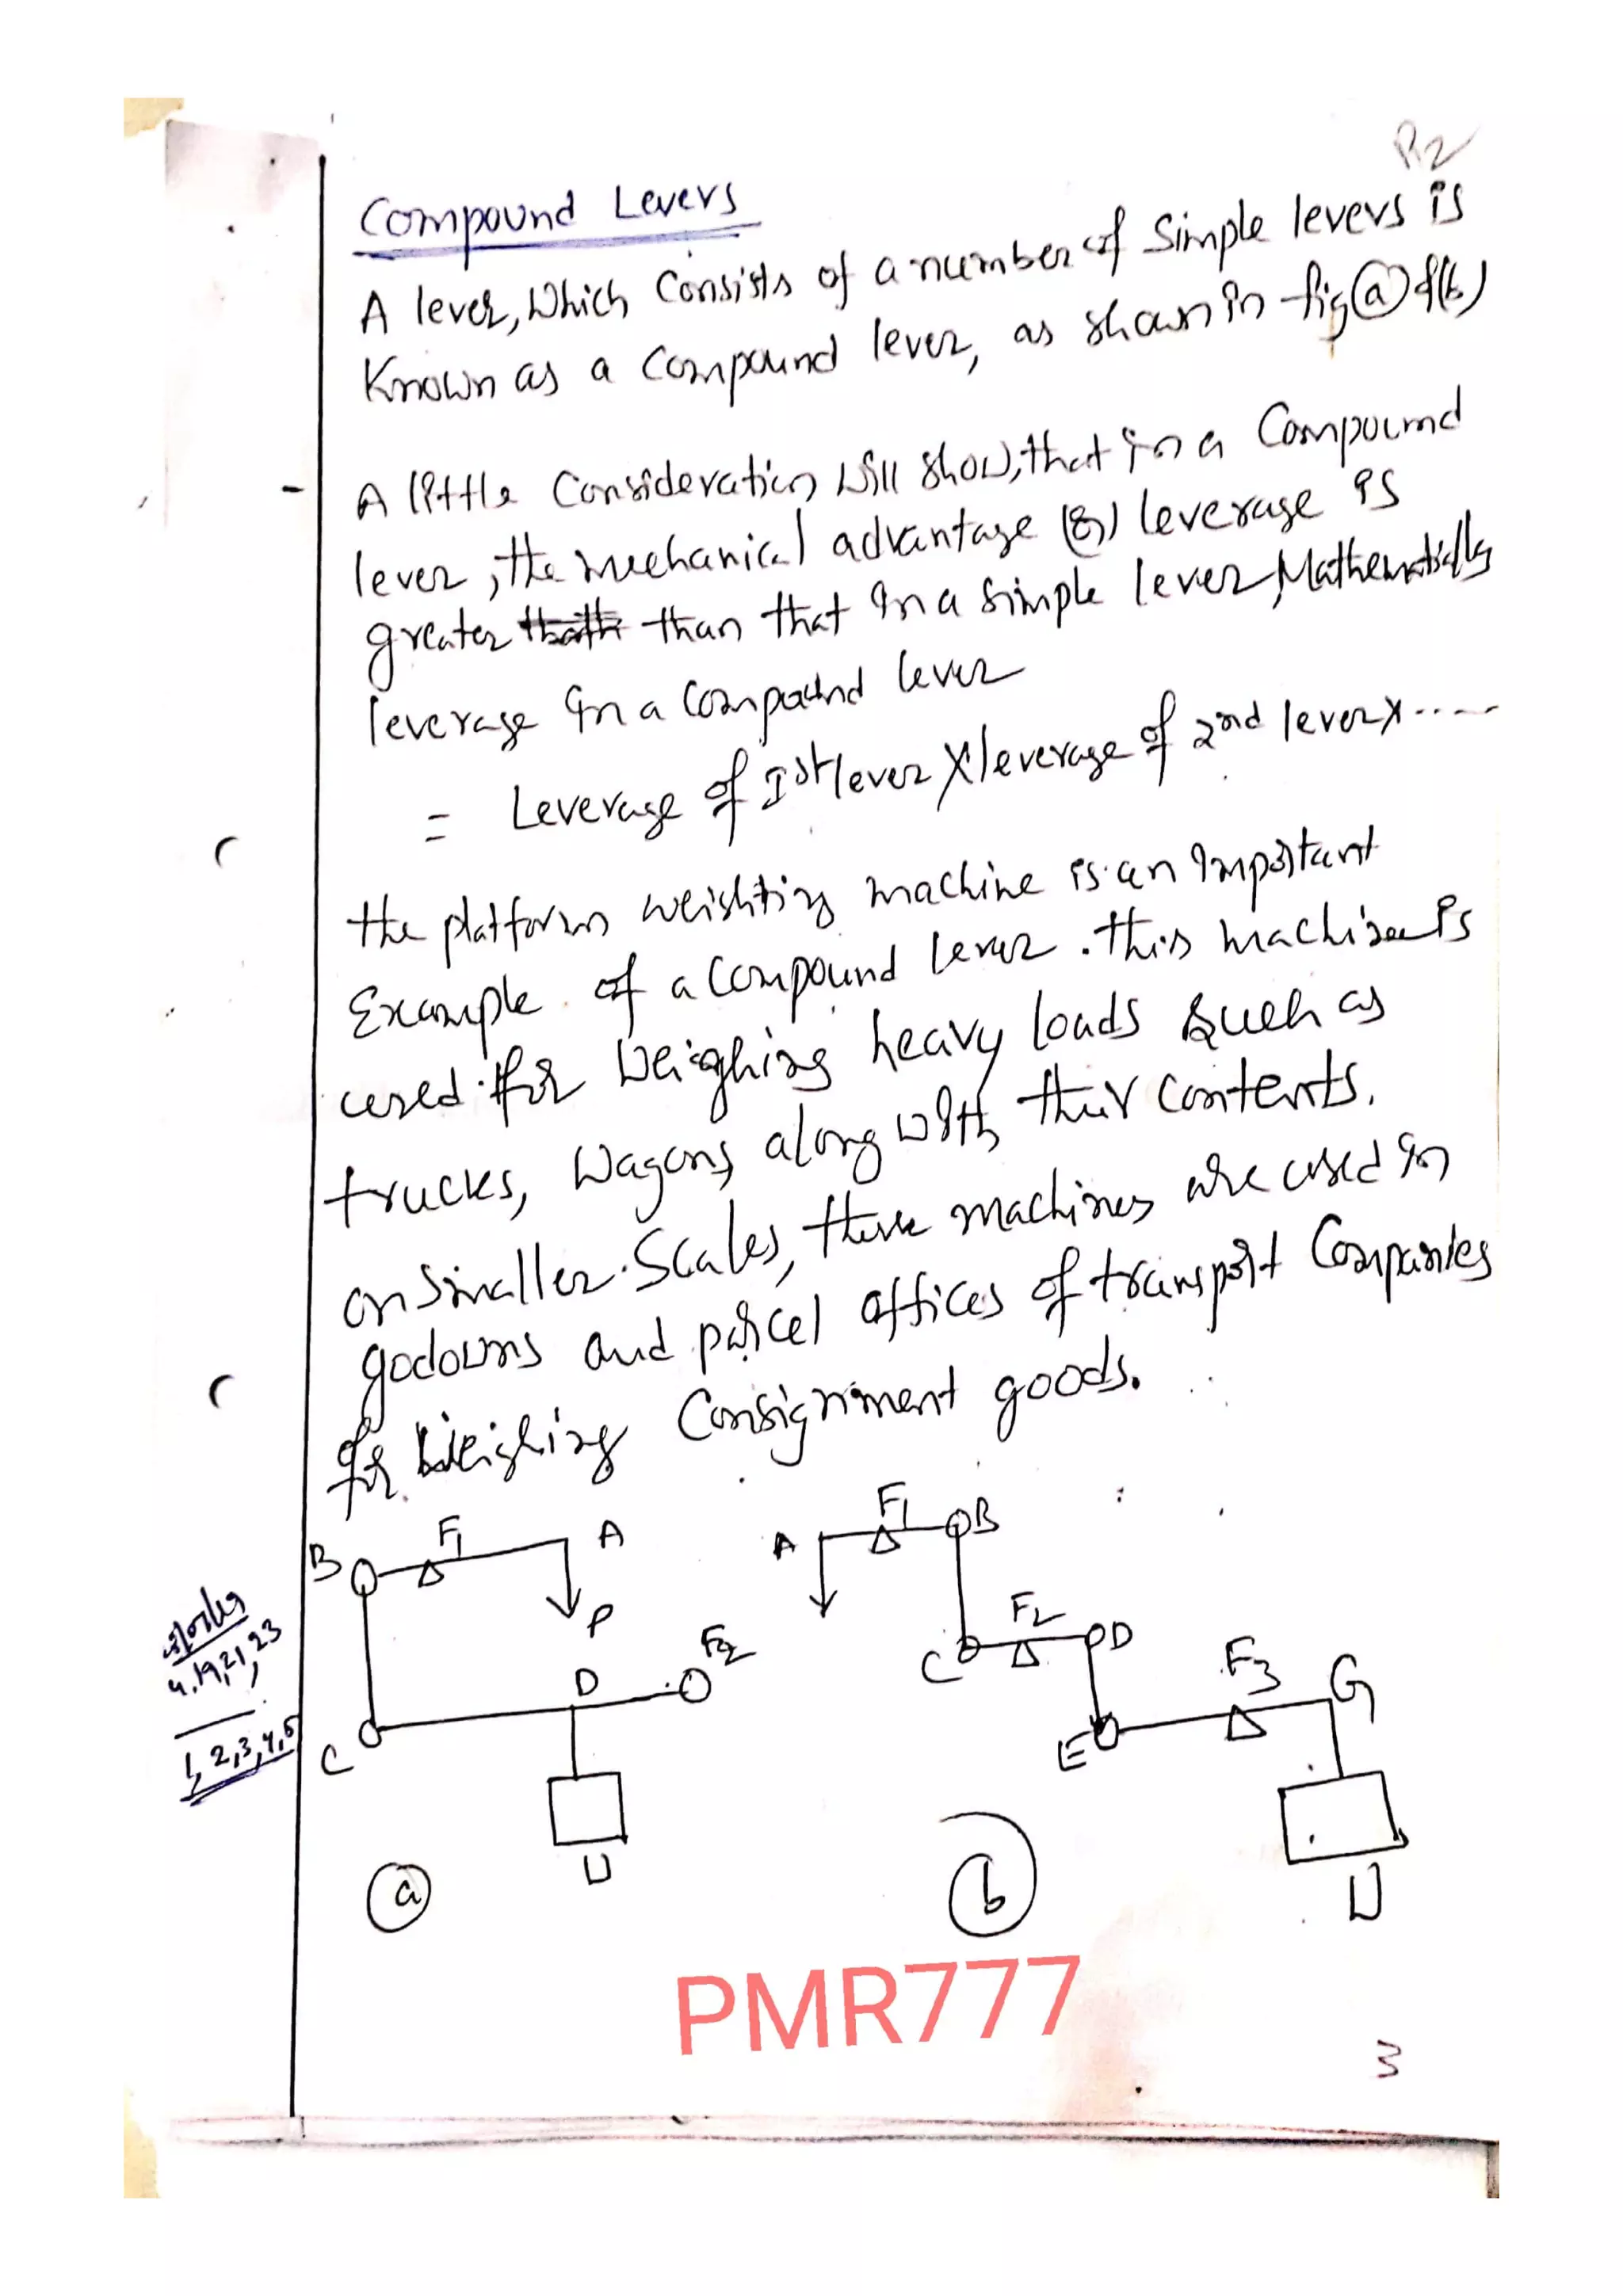 P2
Compound Levers
A lever, which consists of a number of simple levers is
known as a compound lever, as shown in fig (a) & (b)
A little consideration will show, that in a compound
lever, the mechanical advantage (or) leverage is
greater than that in a simple lever, Mathematically
leverage in a compound lever
= Leverage of Ist lever X leverage of 2nd lever X .....
the platform weighting machine is an important
Example of a compound lever. this machine is
used for weighing heavy loads such as
trucks, wagons, along with their contents.
on smaller scales, these machines are used in
godowns and parcel offices of transport Companies
for weighing consignment goods.
B F1 A
P
C D F2
W
(a)
A F1 B
C F2 D
E F3 G
W
(b)
4, 19, 21, 23
1, 2, 3, 4, 5
PMR777
3